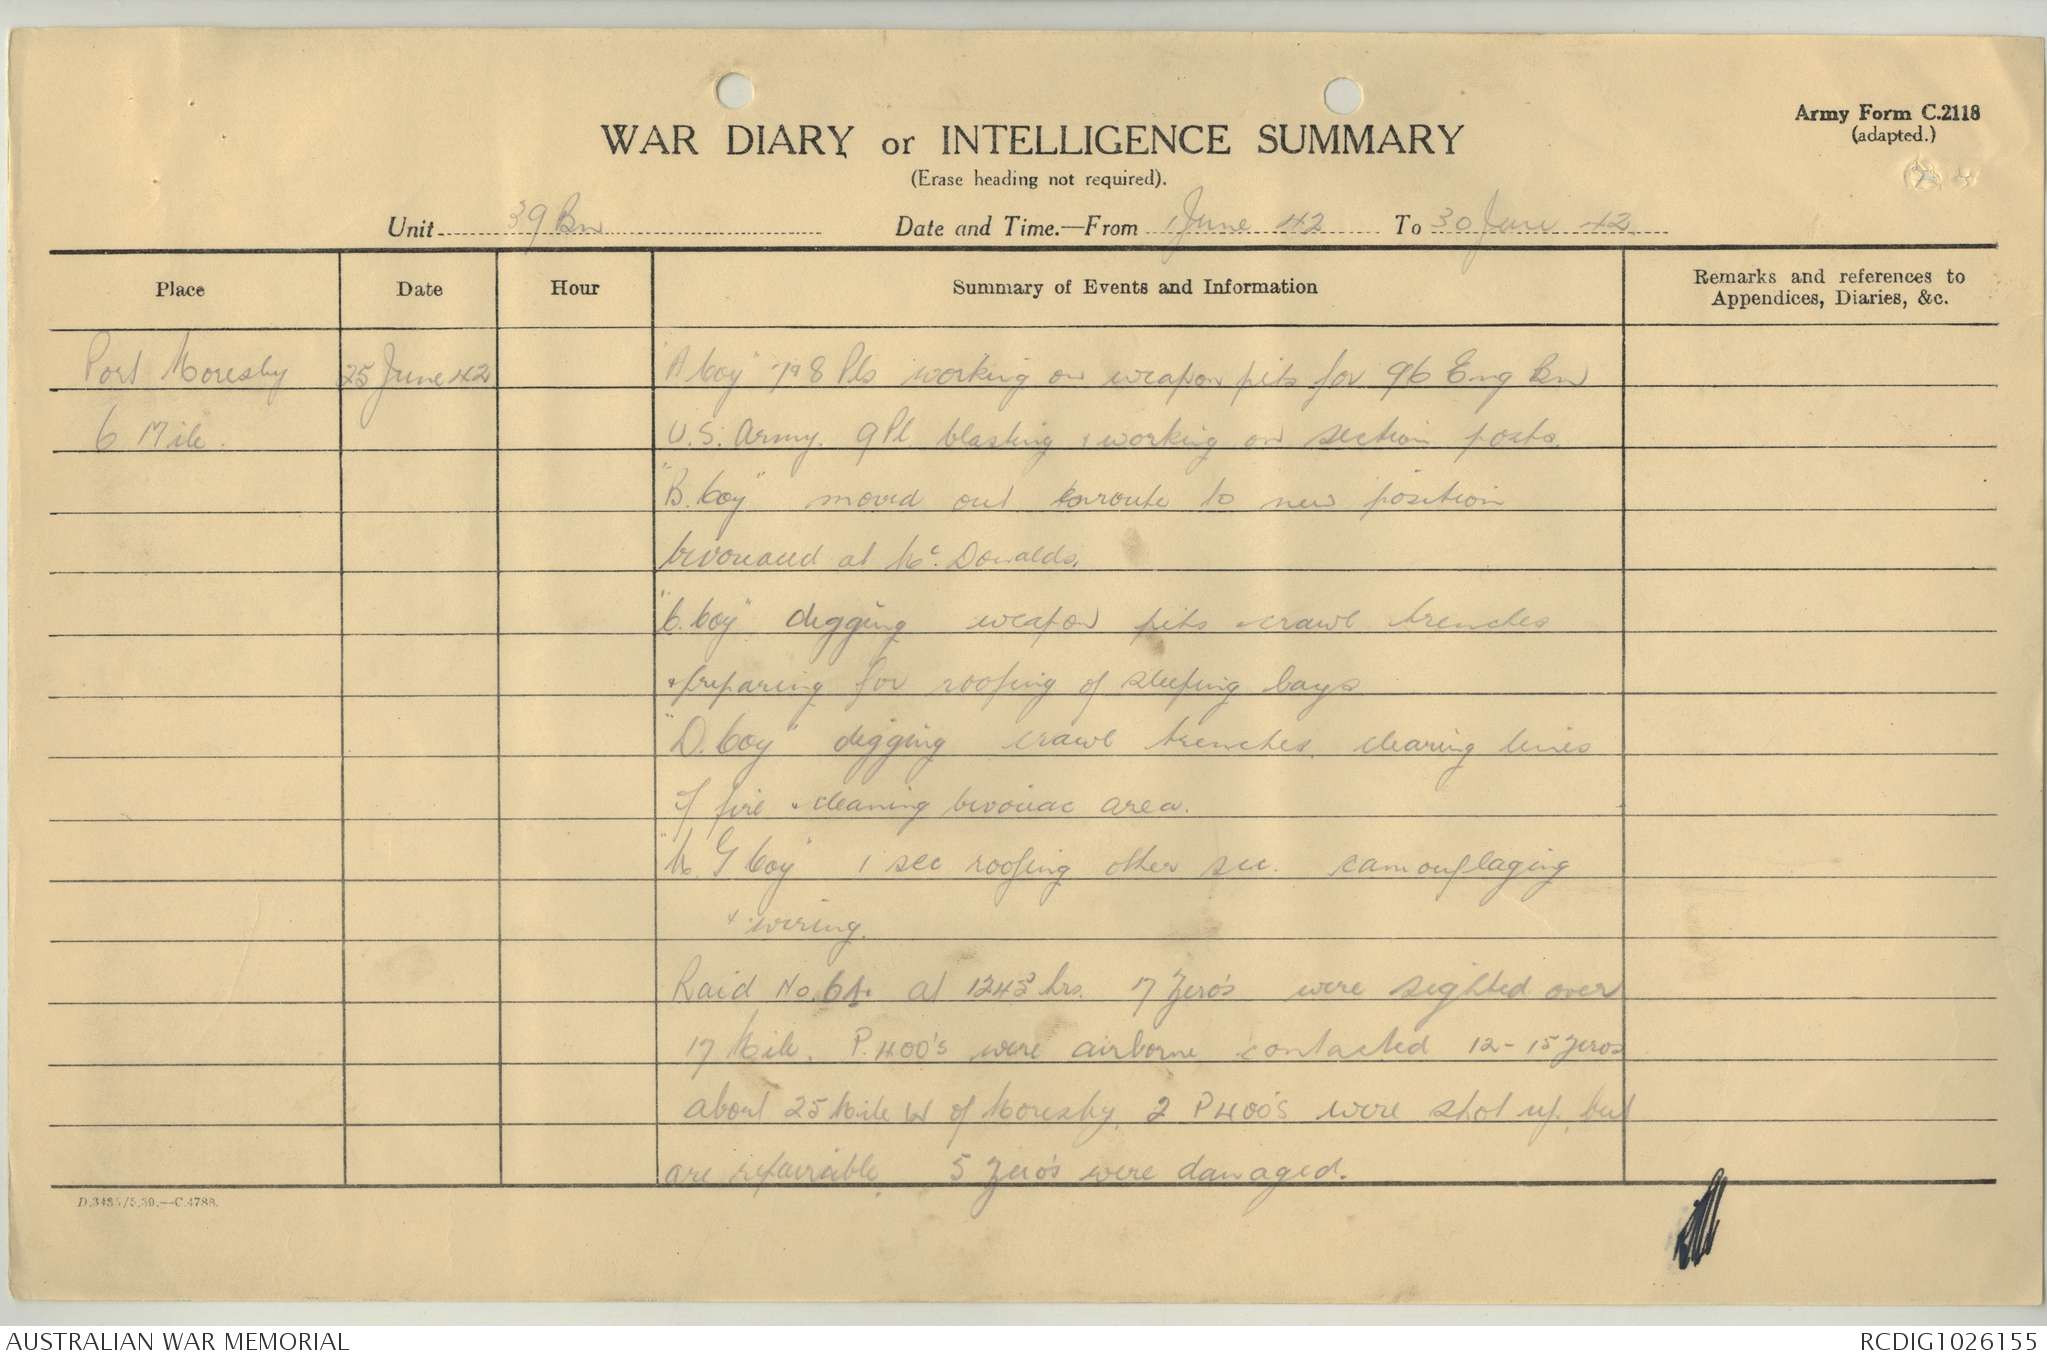 Army Form C.2118
(adapted.)
WAR DIARY or INTELLIGENCE SUMMARY
(Erase heading not required).
Unit 39 Bn Date and Time.—From 1 June 42 To 30 June 42
Place Date Hour Summary of Events and Information Remarks and references to Appendices, Diaries, &c.
Port Moresby 25 June 42 "A Coy" 7 & 8 Pls working on weapon pits for 96 Eng Bn
6 Mile. U.S. Army. 9 Pl. blasting & working on section posts.
"B. Coy" moved out enroute to new position
bivouaced at Mc. Donalds.
"C. Coy" digging weapon pits & crawl trenches
& preparing for roofing of sleeping bays
"D. Coy" digging crawl trenches clearing lines
of fire & cleaning bivouac area.
"M. G Coy" 1 sec roofing other sec. camouflaging
& wiring.
Raid No. at hrs. 17 Zero's were sighted over
17 Mile. P.400's were airborne & contacted 12-15 Zeros
about 25 Mile W of Moresby. 2 P400's were shot up, but
are repairable. 5 Zero's were damaged.
D.3485/5.39.—C.4788.
AUSTRALIAN WAR MEMORIAL RCDIG1026155